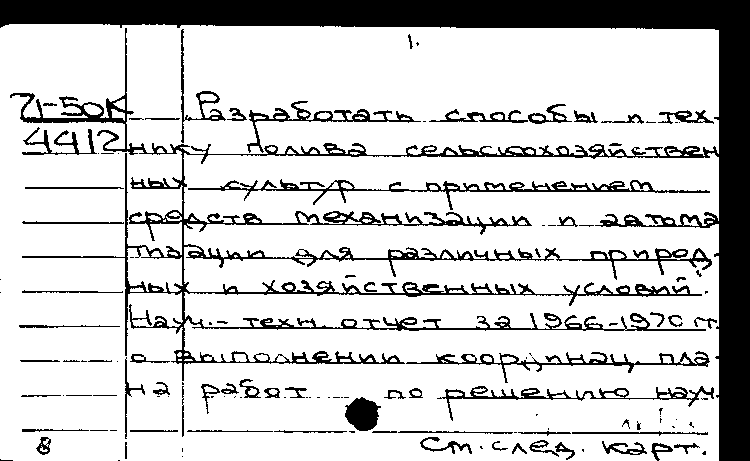 1.
71-50К Разработать способы и тех-
4412 нику полива сельскохозяйствен
ных культур с применением
средств механизации и автома
тизации для различных природ-
ных и хозяйственных условий.
Науч.-техн. отчет за 1966-1970 гг.
о выполнении координац. пла-
на работ по решению науч.
8 См. след. карт.